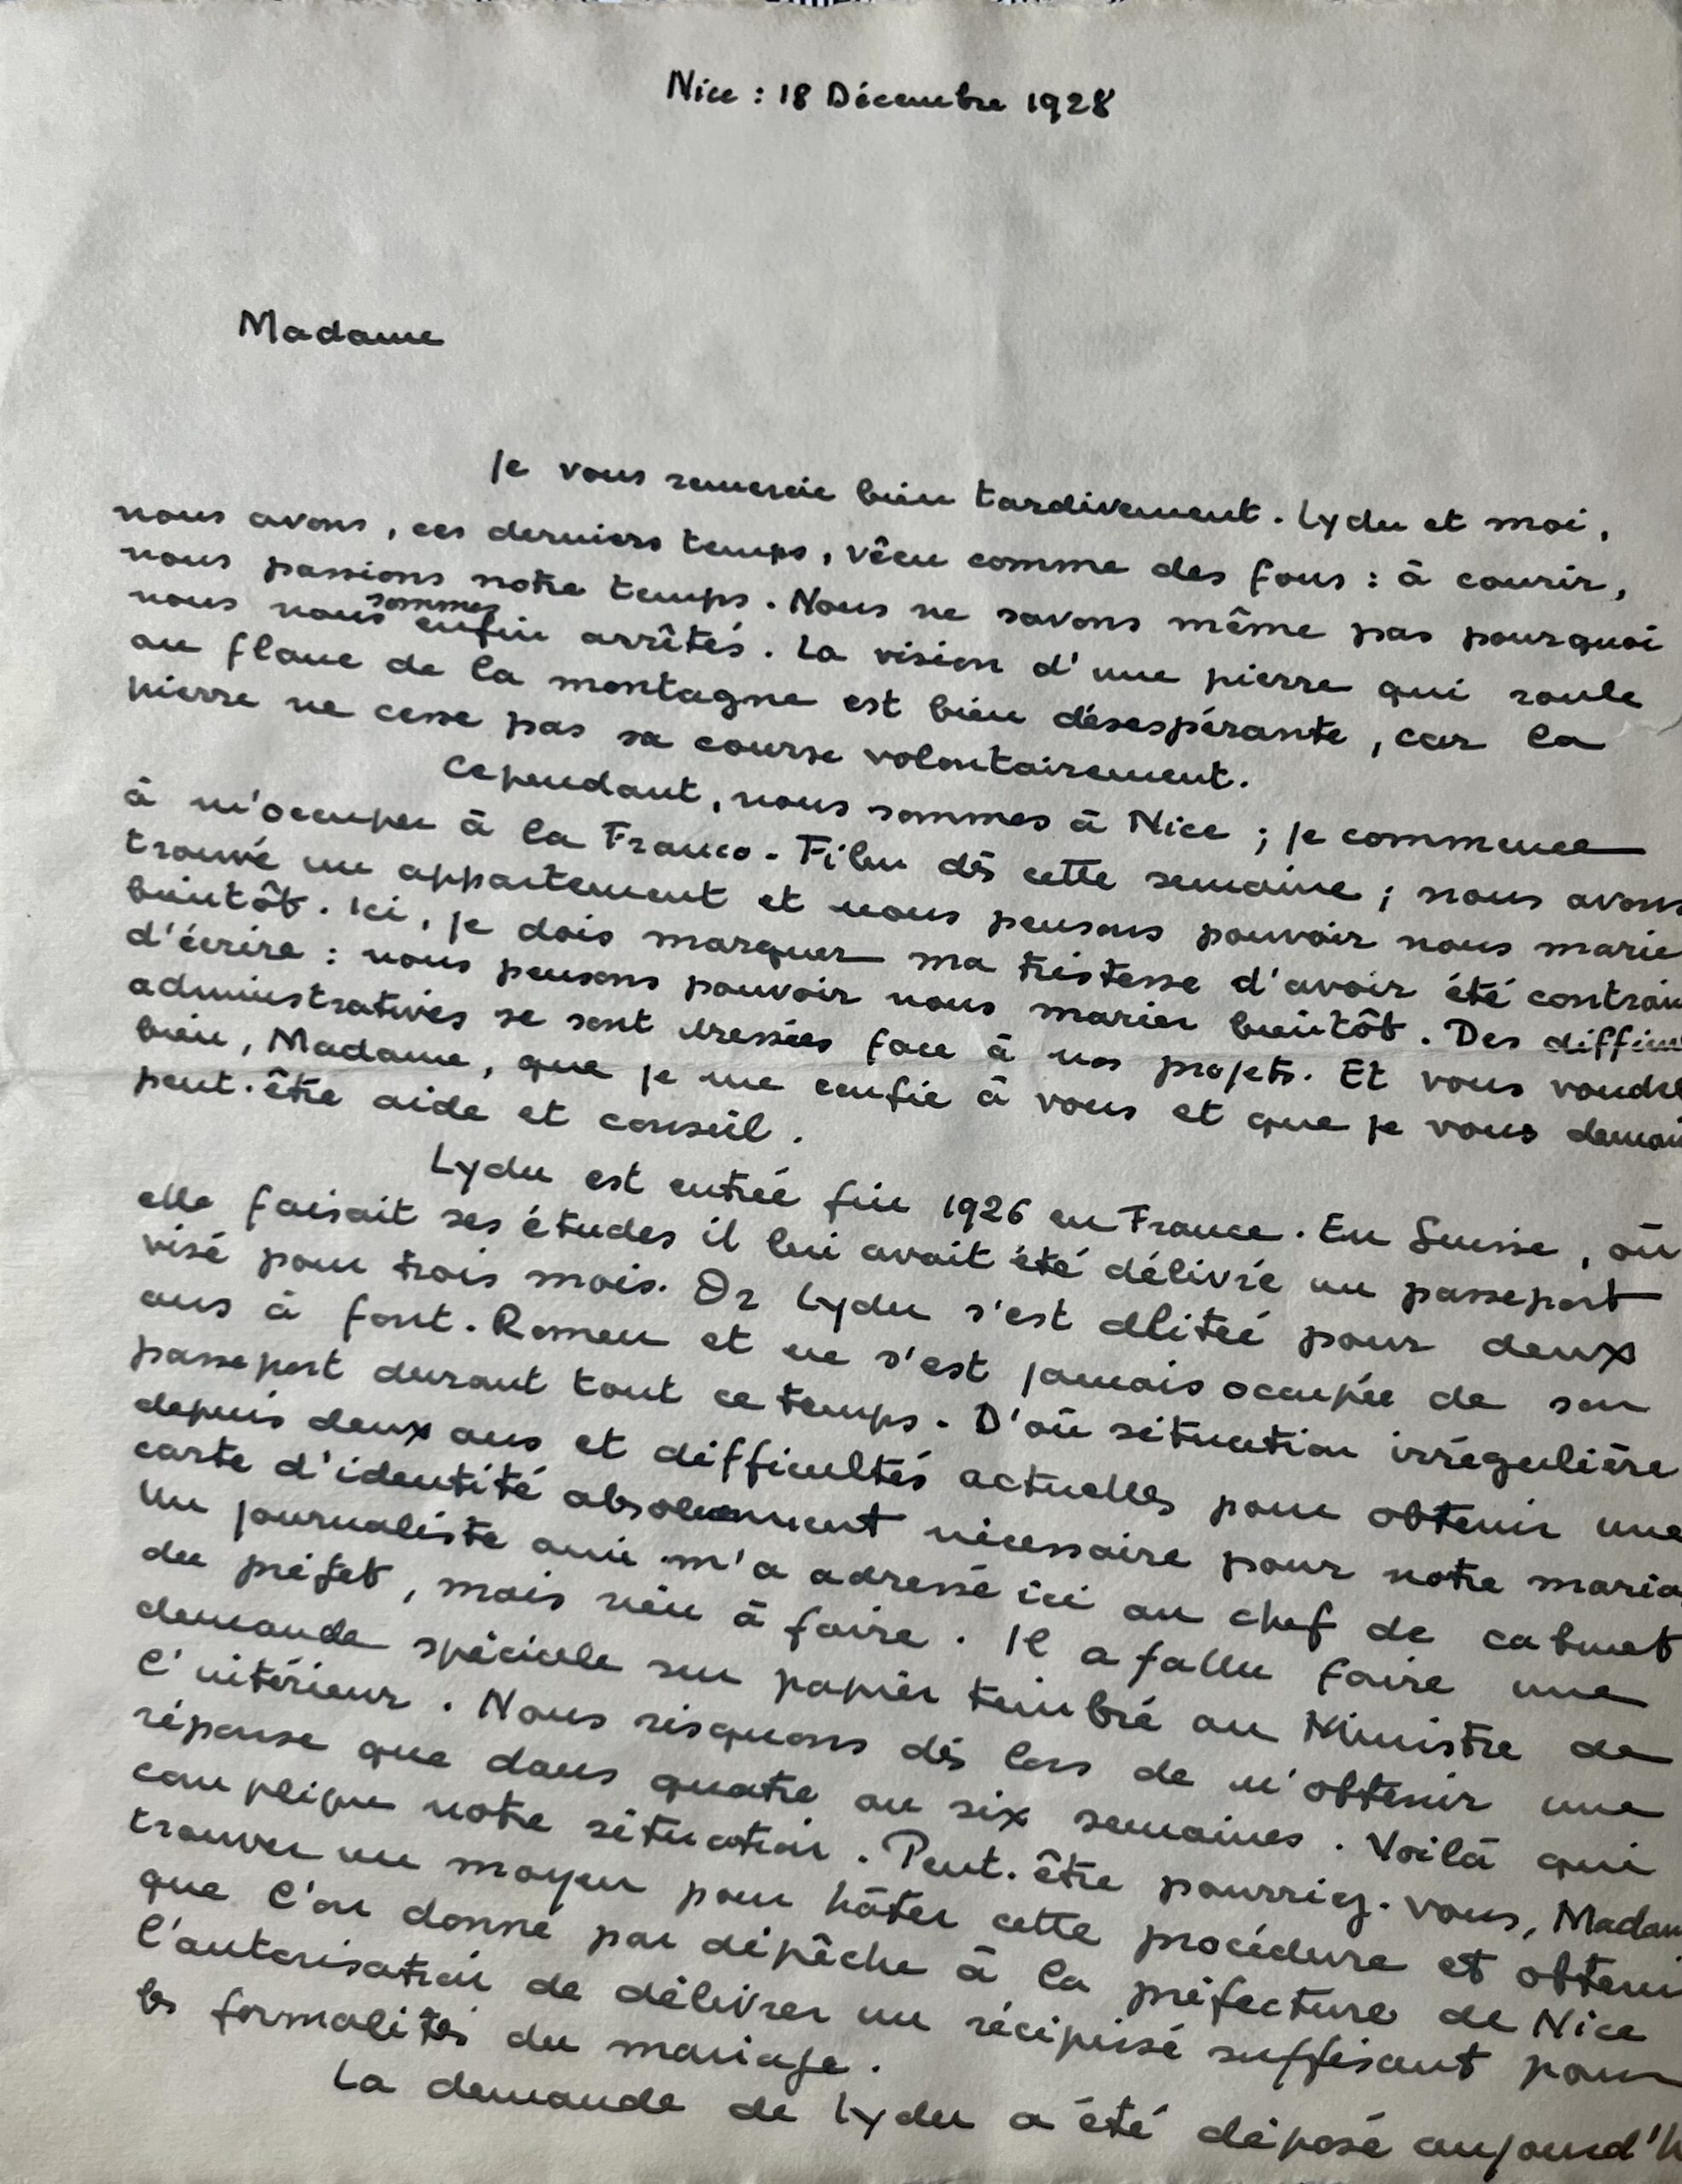 Nice : 18 Décembre 1928
Madame
Je vous remercie bien tardivement. Lydu et moi,
nous avons, ces derniers temps, vécu comme des fous : à courir,
nous passions notre temps. Nous ne savons même pas pourquoi
nous nous sommes enfin arrêtés. La vision d'une pierre qui roule
au flanc de la montagne est bien désespérante, car la
pierre ne cesse pas sa course volontairement.
Cependant, nous sommes à Nice ; je commence
à m'occuper à la Franco-Film dès cette semaine ; nous avons
trouvé un appartement et nous pensons pouvoir nous marie
bientôt. Ici, je dois marquer ma tristesse d'avoir été contrain
d'écrire : nous pensons pouvoir nous marier bientôt. Des difficu
administratives se sont dressées face à nos projets. Et vous voudre
bien, Madame, que je me confie à vous et que je vous deman
peut-être aide et conseil.
Lydu est entrée fin 1926 en France. En Suisse, où
elle faisait ses études il lui avait été délivré un passeport
visé pour trois mois. Or Lydu s'est alitée pour deux
ans à Font-Romeu et ne s'est jamais occupée de son
passeport durant tout ce temps. D'où situation irrégulière
depuis deux ans et difficultés actuelles pour obtenir une
carte d'identité absolument nécessaire pour notre maria
Un journaliste ami m'a adressé ici au chef de cabinet
du préfet, mais rien à faire. Il a fallu faire une
demande spéciale sur papier timbré au Ministre de
l'intérieur. Nous risquons dès lors de n'obtenir une
réponse que dans quatre ou six semaines. Voilà qui
complique notre situation. Peut-être pourriez-vous, Madam
trouver un moyen pour hâter cette procédure et obteni
que l'on donne par dépêche à la préfecture de Nice
l'autorisation de délivrer un récépissé suffisant pour
les formalités du mariage.
La demande de Lydu a été déposé aujourd'h